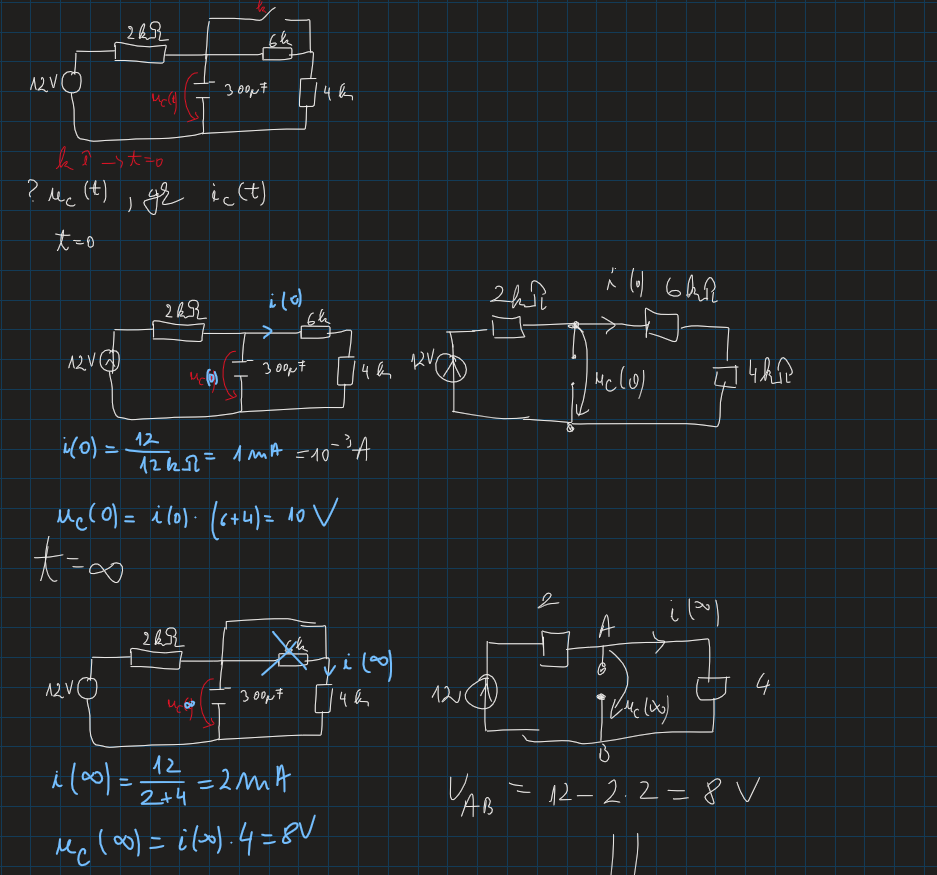 k
2kΩ
6k
12V
uc(t)
300μF
4k
k ↑ → t=0
? uc(t), ic(t)
t=0
i(0)
2kΩ
6k
12V
uc(0)
300μF
4k
2kΩ
i(0)
6kΩ
12V
uc(0)
4kΩ
i(0) = 12/12kΩ = 1mA = 10⁻³A
uc(0) = i(0)·(6+4) = 10 V
t = ∞
2kΩ
6k
i(∞)
12V
uc∞
300μF
4k
2
A
i(∞)
12V
uc(∞)
4
B
i(∞) = 12/2+4 = 2mA
VAB = 12 - 2.2 = 8 V
uc(∞) = i(∞).4 = 8V